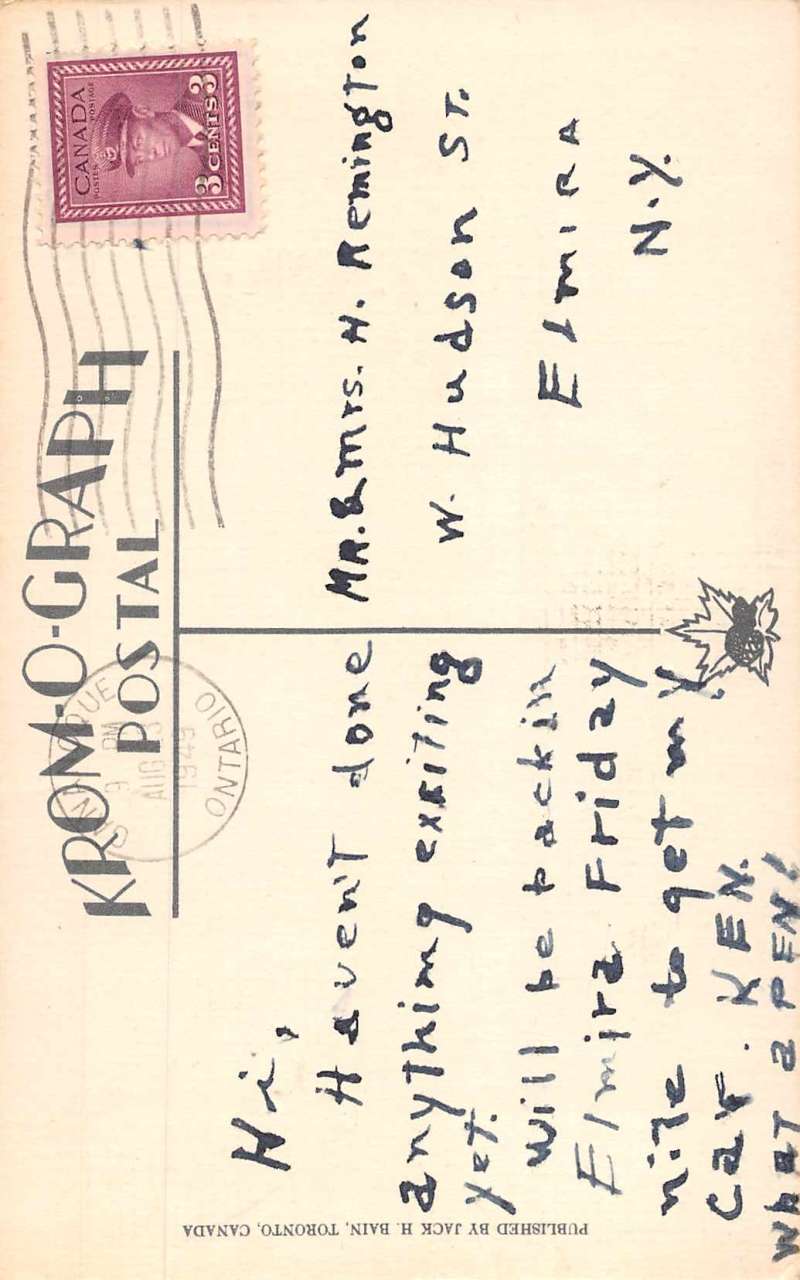 KROM-O-GRAPH
POSTAL
CANADA
POSTES POSTAGE
3 CENTS 3
9 PM
AUG
1949
ONTARIO
Hi,
Haven't done
anything exxiting
yet.
will be back in
Elmira Friday
nite to get my
car. KEN.
What a PEN!
MR. & Mrs. H. Remington
W. Hudson ST.
Elmira
N.Y.
PUBLISHED BY JACK H. BAIN, TORONTO, CANADA